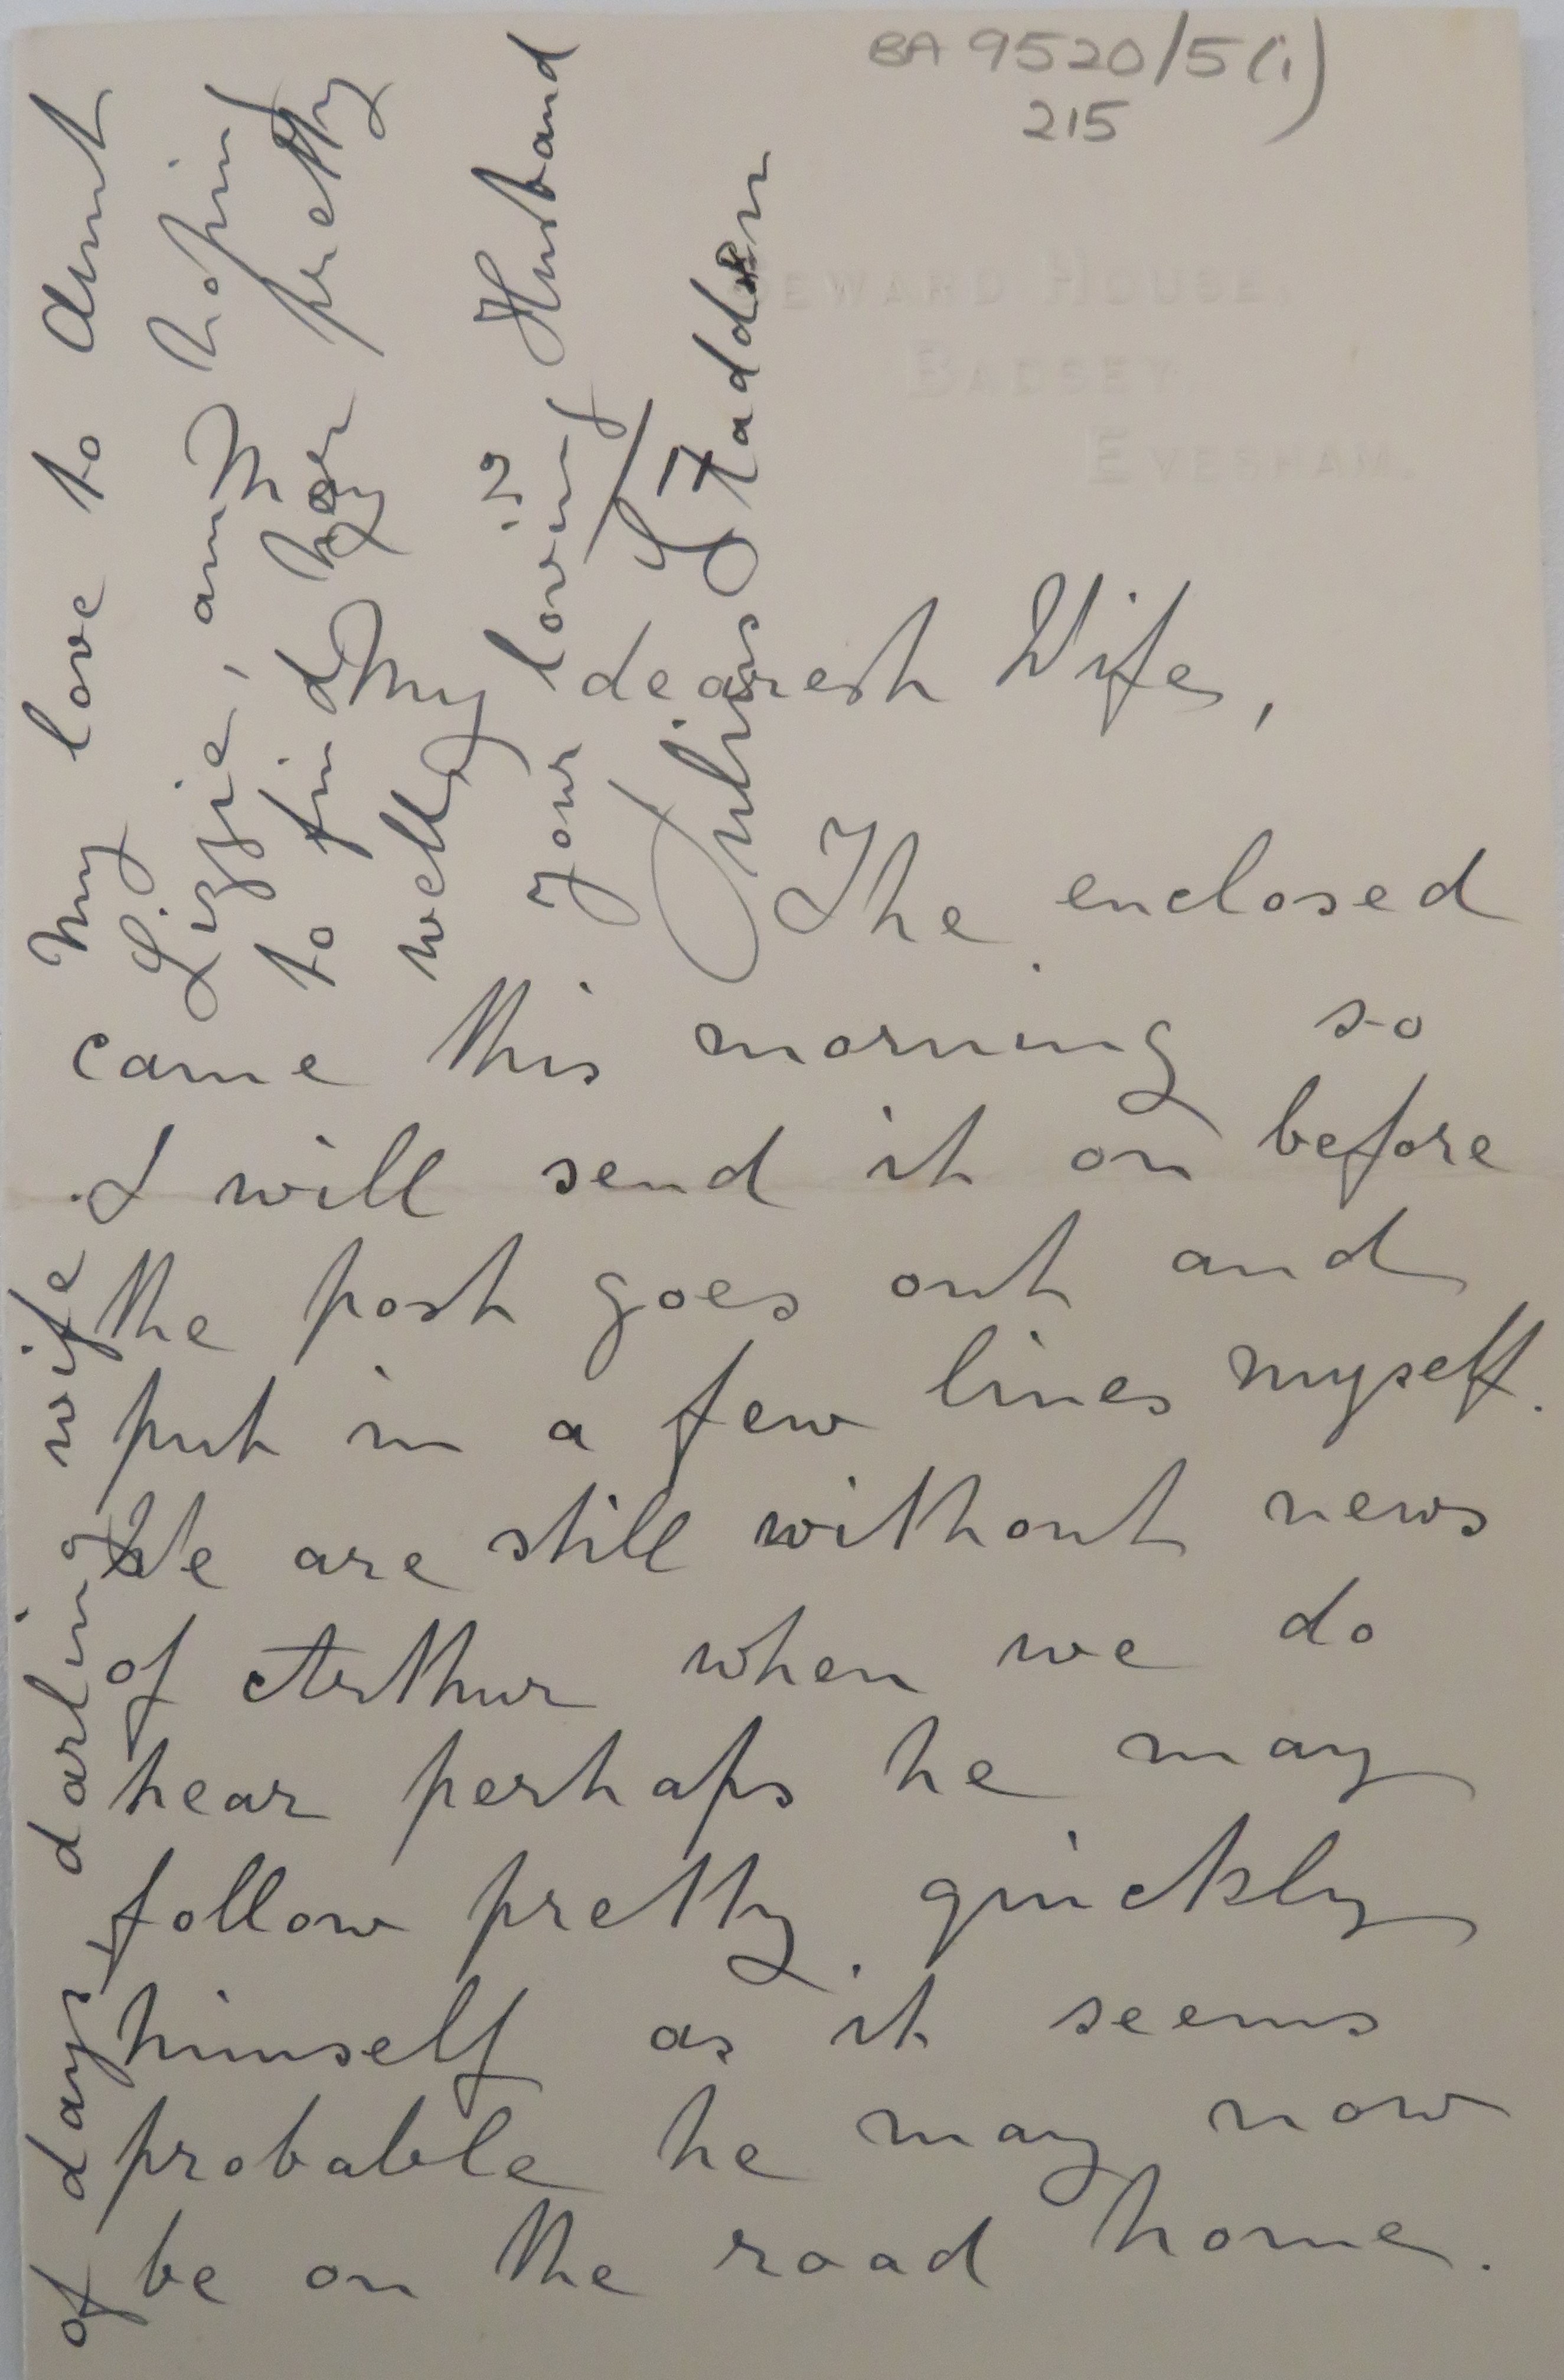 BA 9520/5(i)
215
SEWARD HOUSE,
BADSEY,
EVESHAM.
My dearest Wife,
The enclosed
came this morning so
I will send it on before
the post goes out and
put in a few lines myself.
We are still without news
of Arthur when we do
hear perhaps he may
follow pretty quickly
himself as it seems
probable he may now
be on the road home.
of days, darling wife
My love to Aunt
Lizzie, hoping
to find her pretty
well,
Your loving Husband
Julius Sladden